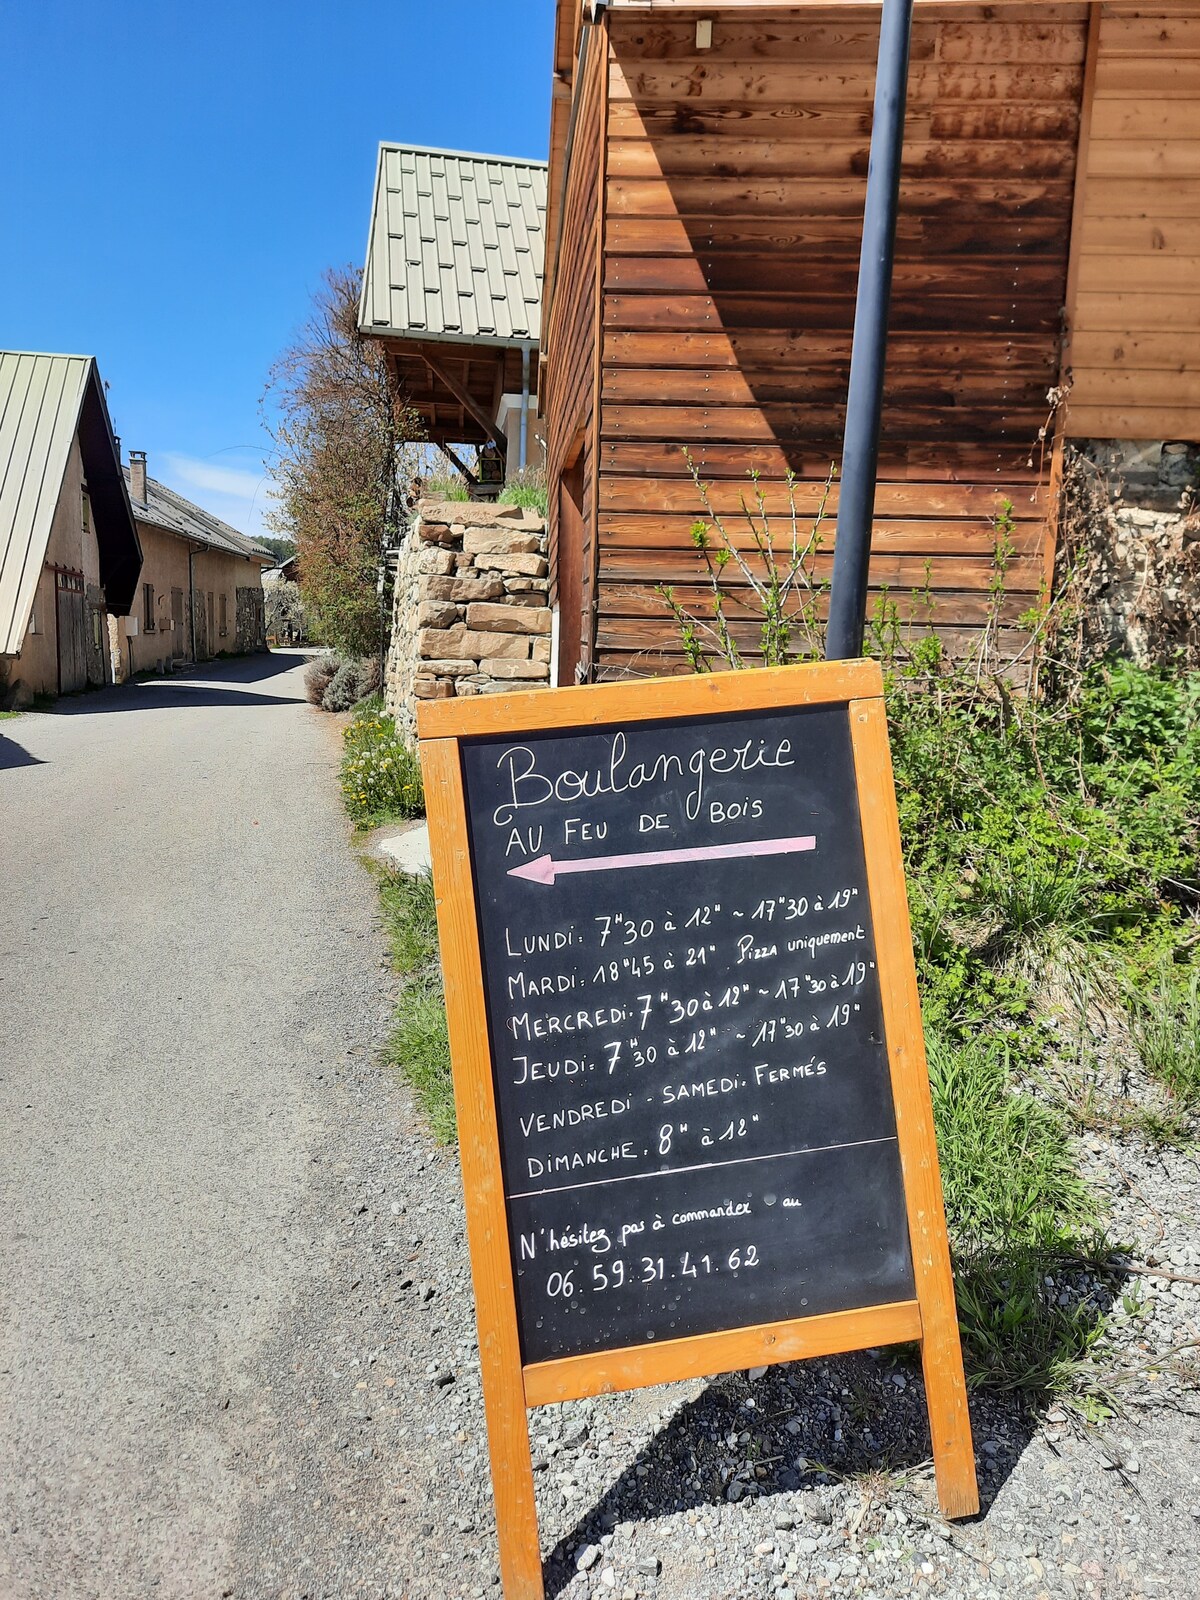 Boulangerie
AU FEU DE BOIS
LUNDI: 7H30 à 12H ~ 17H30 à 19H
MARDI: 18H45 à 21H. Pizza uniquement
MERCREDI: 7H30 à 12H ~ 17H30 à 19H
JEUDI: 7H30 à 12H ~ 17H30 à 19H
VENDREDI - SAMEDI: FERMÉS
DIMANCHE: 8H à 12H
N'hésitez pas à commander au
06.59.31.41.62